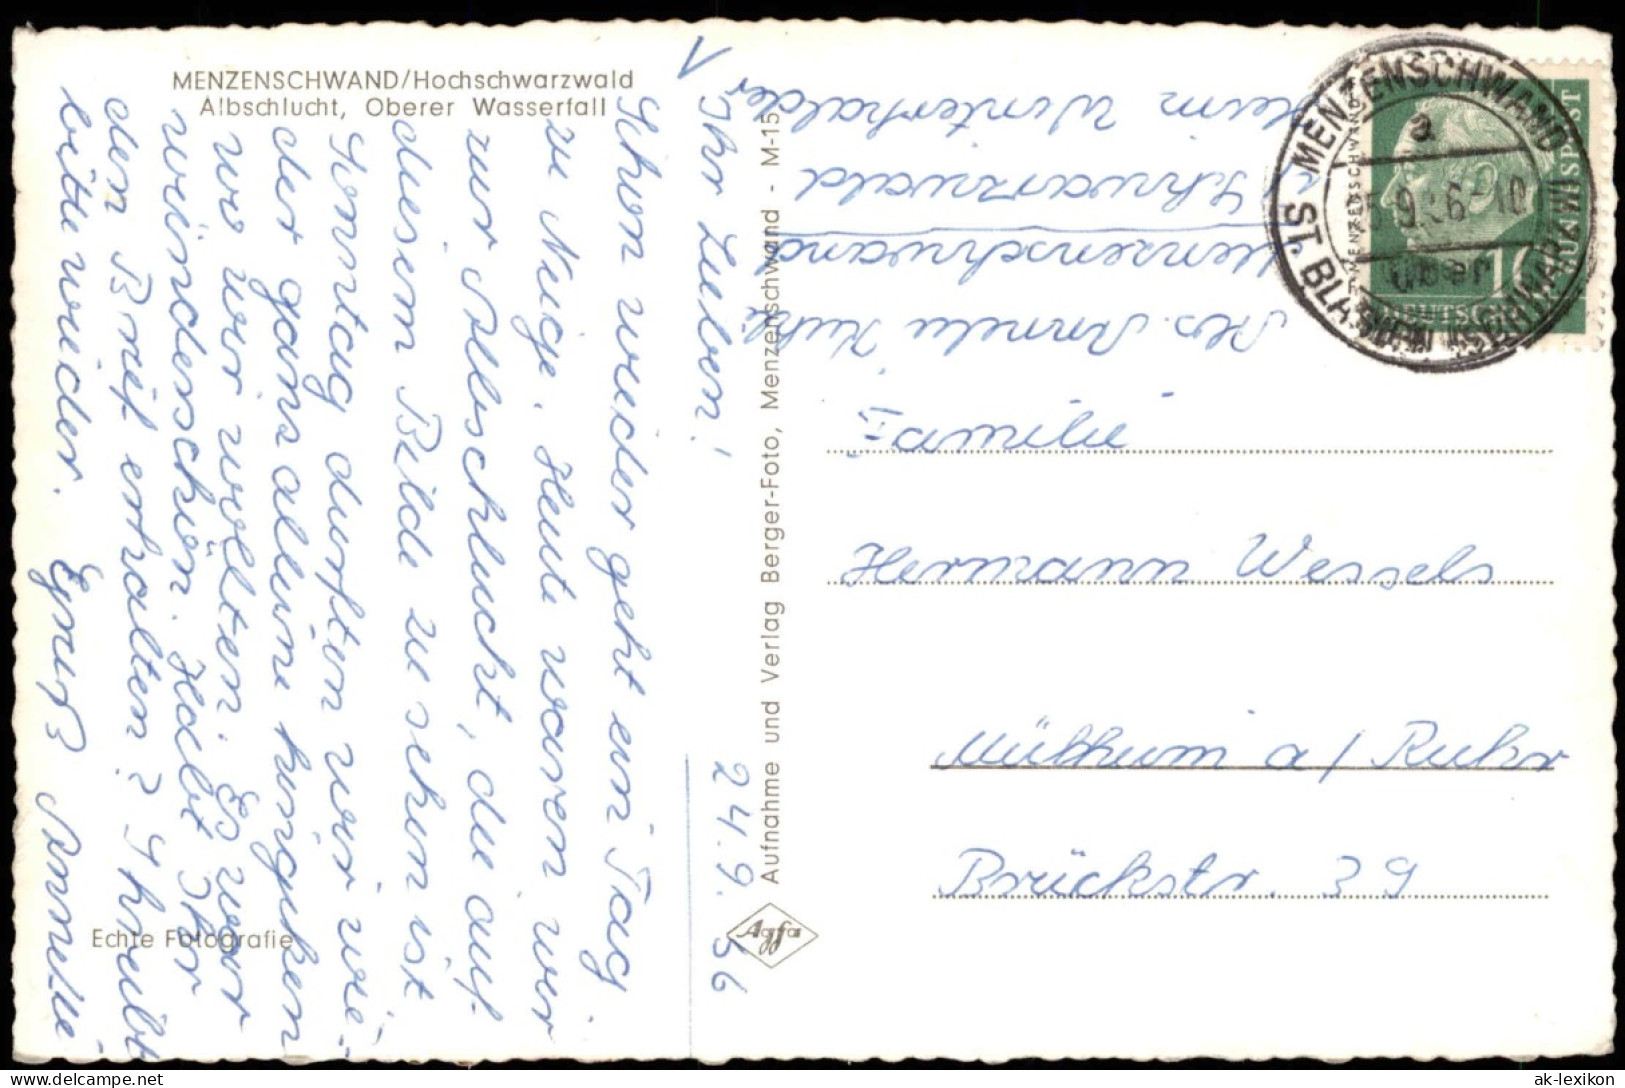 MENZENSCHWAND/Hochschwarzwald
Albschlucht, Oberer Wasserfall
24.9.56
Ihr Lieben!
Schon wieder geht ein Tag
zu Neige. Heute waren wir
zur Albschlucht, die auf
diesem Bilde zu sehen ist.
Sonntag durften wir wie-
der ganz alleine hingehen
wo wir wollten. Es war
wunderschön. Habt Ihr
den Brief erhalten? Schreibt
bitte wieder. Gruß Annelie
Echte Fotografie
Aufnahme und Verlag Berger-Foto, Menzenschwand - M-15
Agfa
Abs. Annelie
Menzenschwand
Schwarzwald
Heim Winterhalder
MENZENSCHWAND
a
9.56-10
über
ST. BLASIEN (SCHWARZW)
DEUTSCHE BUNDESPOST
10
Familie
Hermann Wessels
Mülheim a/Ruhr
Brückstr. 39
© ak-lexikon.de
ak-lexikon